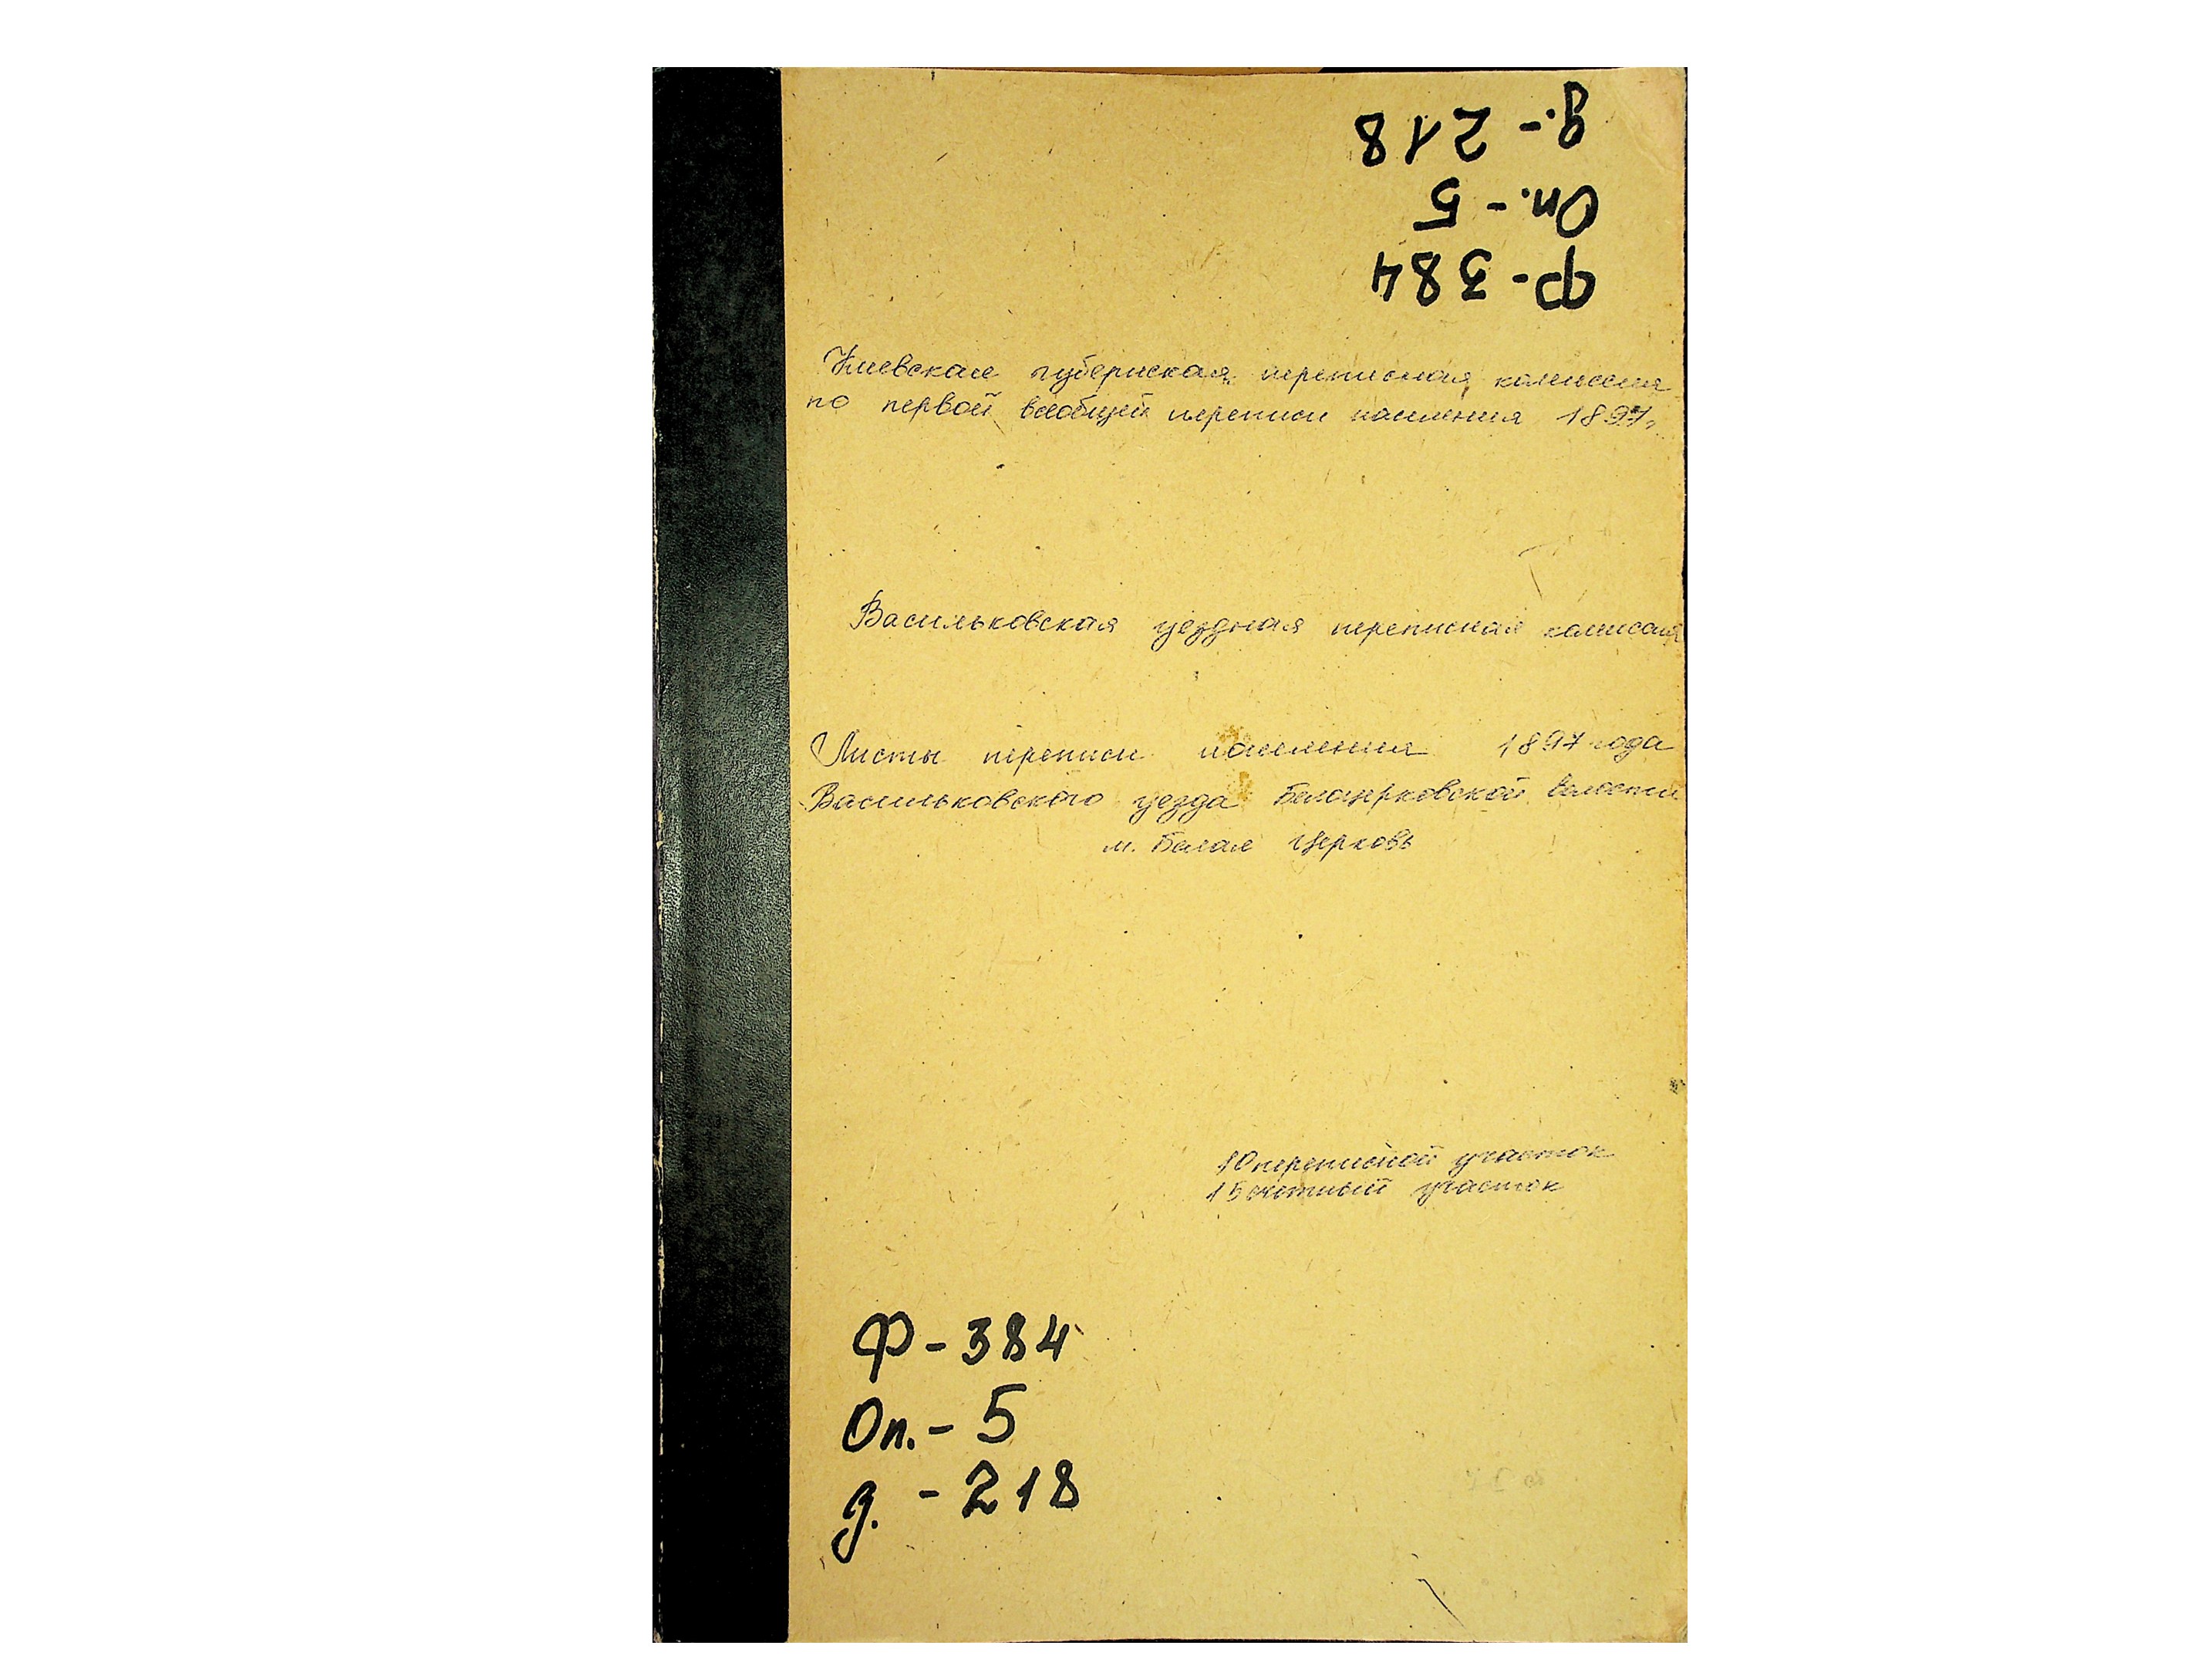 д. - 218
Оп. - 5
Ф - 384
Киевская губернская переписная комиссия
по первой всеобщей переписи населения 1897г.
Васильковская уездная переписная комиссия
Листы переписи населения 1897 года
Васильковского уезда Белоцерковской волости
м. Белая Церковь
10 переписной участок
15 счетный участок
Ф - 384
Оп. - 5
д. - 218